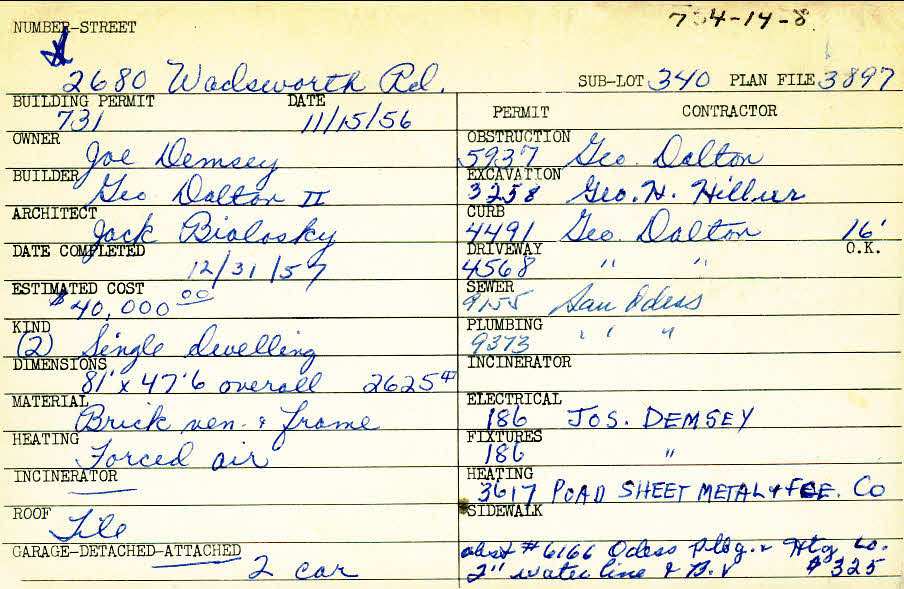 734-14-8
NUMBER-STREET
2680 Wadsworth Rd. SUB-LOT 340 PLAN FILE 3897
BUILDING PERMIT DATE
731 11/15/56
OWNER
Joe Demsey
BUILDER
Geo Dalton II
ARCHITECT
Jack Bialosky
DATE COMPLETED
12/31/57
ESTIMATED COST
$40,000 00
KIND
(2) Single dwelling
DIMENSIONS
81' x 47'6 overall 2625#
MATERIAL
Brick ven. & frame
HEATING
Forced air
INCINERATOR
ROOF
Tile
GARAGE-DETACHED-ATTACHED
2 car
PERMIT CONTRACTOR
OBSTRUCTION
5937 Geo. Dalton
EXCAVATION
3258 Geo. H.
CURB
4491 Geo. Dalton 16'
DRIVEWAY O.K.
4568 " "
SEWER
9155 Sam Odess
PLUMBING
9373 " " "
INCINERATOR
ELECTRICAL
186 JOS. DEMSEY
FIXTURES
186 "
HEATING
3617 POAD SHEET METAL & FCE. CO
SIDEWALK
obst #6166 Odess Plbg. & Htg Co.
2" water line & B.V $325